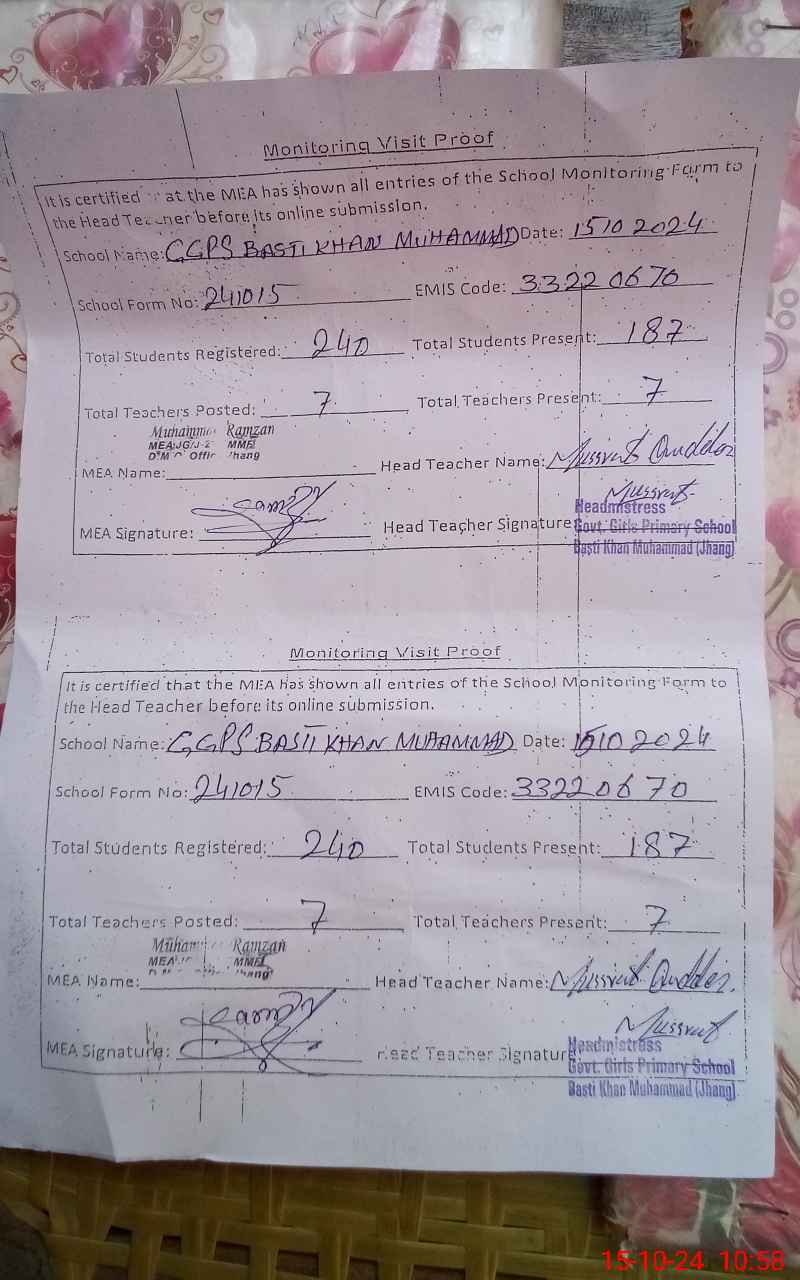 Monitoring Visit Proof
It is certified at the MEA has shown all entries of the School Monitoring Form to
the Head Teacher before its online submission.
School Name: GGPS BASTI KHAN MUHAMMAD Date: 15 10 2024
School Form No: 241015 EMIS Code: 33220670
Total Students Registered: 240 Total Students Present: 187
Total Teachers Posted: 7 Total Teachers Present: 7
Muhammad Ramzan
MMEJ
Jhang
MEA Name: Head Teacher Name: Mussrat
MEA Signature: Head Teacher Signature: Mussrat
Headmistress
Govt. Girls Primary School
Basti Khan Muhammad (Jhang)
Monitoring Visit Proof
It is certified that the MEA has shown all entries of the School Monitoring Form to
the Head Teacher before its online submission.
School Name: GGPS BASTI KHAN MUHAMMAD Date: 15 10 2024
School Form No: 241015 EMIS Code: 33220670
Total Students Registered: 240 Total Students Present: 187
Total Teachers Posted: 7 Total Teachers Present: 7
Ramzan
MEA Name: Head Teacher Name: Mussrat
MEA Signature: Head Teacher Signature: Mussrat
Headmistress
Govt. Girls Primary School
Basti Khan Muhammad (Jhang)
15-10-24 10:58